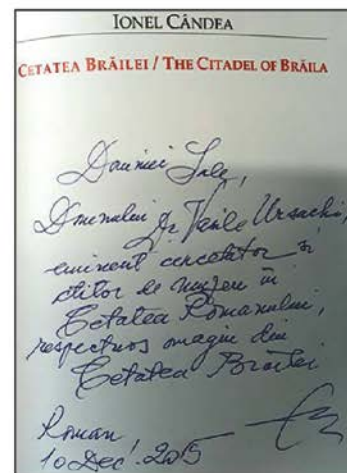 IONEL CÂNDEA
CETATEA BRĂILEI / THE CITADEL OF BRĂILA
Domniei Sale,
Domnului Dr. Vasile Ursachi,
eminent cercetător și
ctitor de muzeu în
Cetatea Romanului,
respectuos omagiu din
Cetatea Brăilei
Roman,
10 Dec. 2015